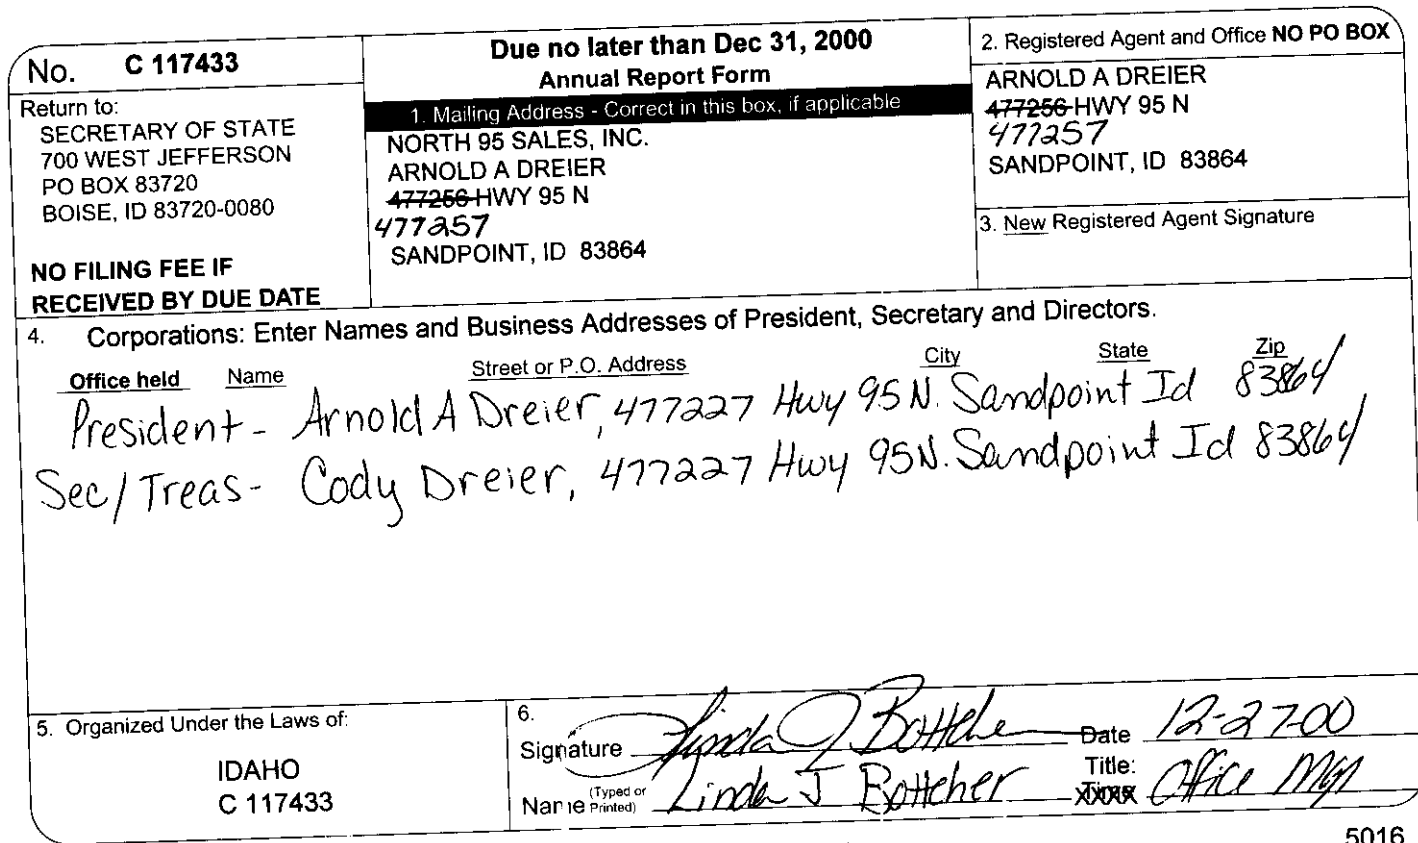 No. C 117433
Return to:
SECRETARY OF STATE
700 WEST JEFFERSON
PO BOX 83720
BOISE, ID 83720-0080
NO FILING FEE IF
RECEIVED BY DUE DATE
Due no later than Dec 31, 2000
Annual Report Form
1. Mailing Address - Correct in this box, if applicable
NORTH 95 SALES, INC.
ARNOLD A DREIER
477256 HWY 95 N
477257
SANDPOINT, ID 83864
2. Registered Agent and Office NO PO BOX
ARNOLD A DREIER
477256 HWY 95 N
477257
SANDPOINT, ID 83864
3. New Registered Agent Signature
4. Corporations: Enter Names and Business Addresses of President, Secretary and Directors.
Office held Name Street or P.O. Address City State Zip
President - Arnold A Dreier, 477227 Hwy 95 N. Sandpoint Id 83864
Sec/Treas - Cody Dreier, 477227 Hwy 95 N. Sandpoint Id 83864
5. Organized Under the Laws of:
IDAHO
C 117433
6.
Signature Linda J Bottcher Date 12-27-00
Name (Typed or Printed) Linda J Bottcher Title: Office Mgr
5016